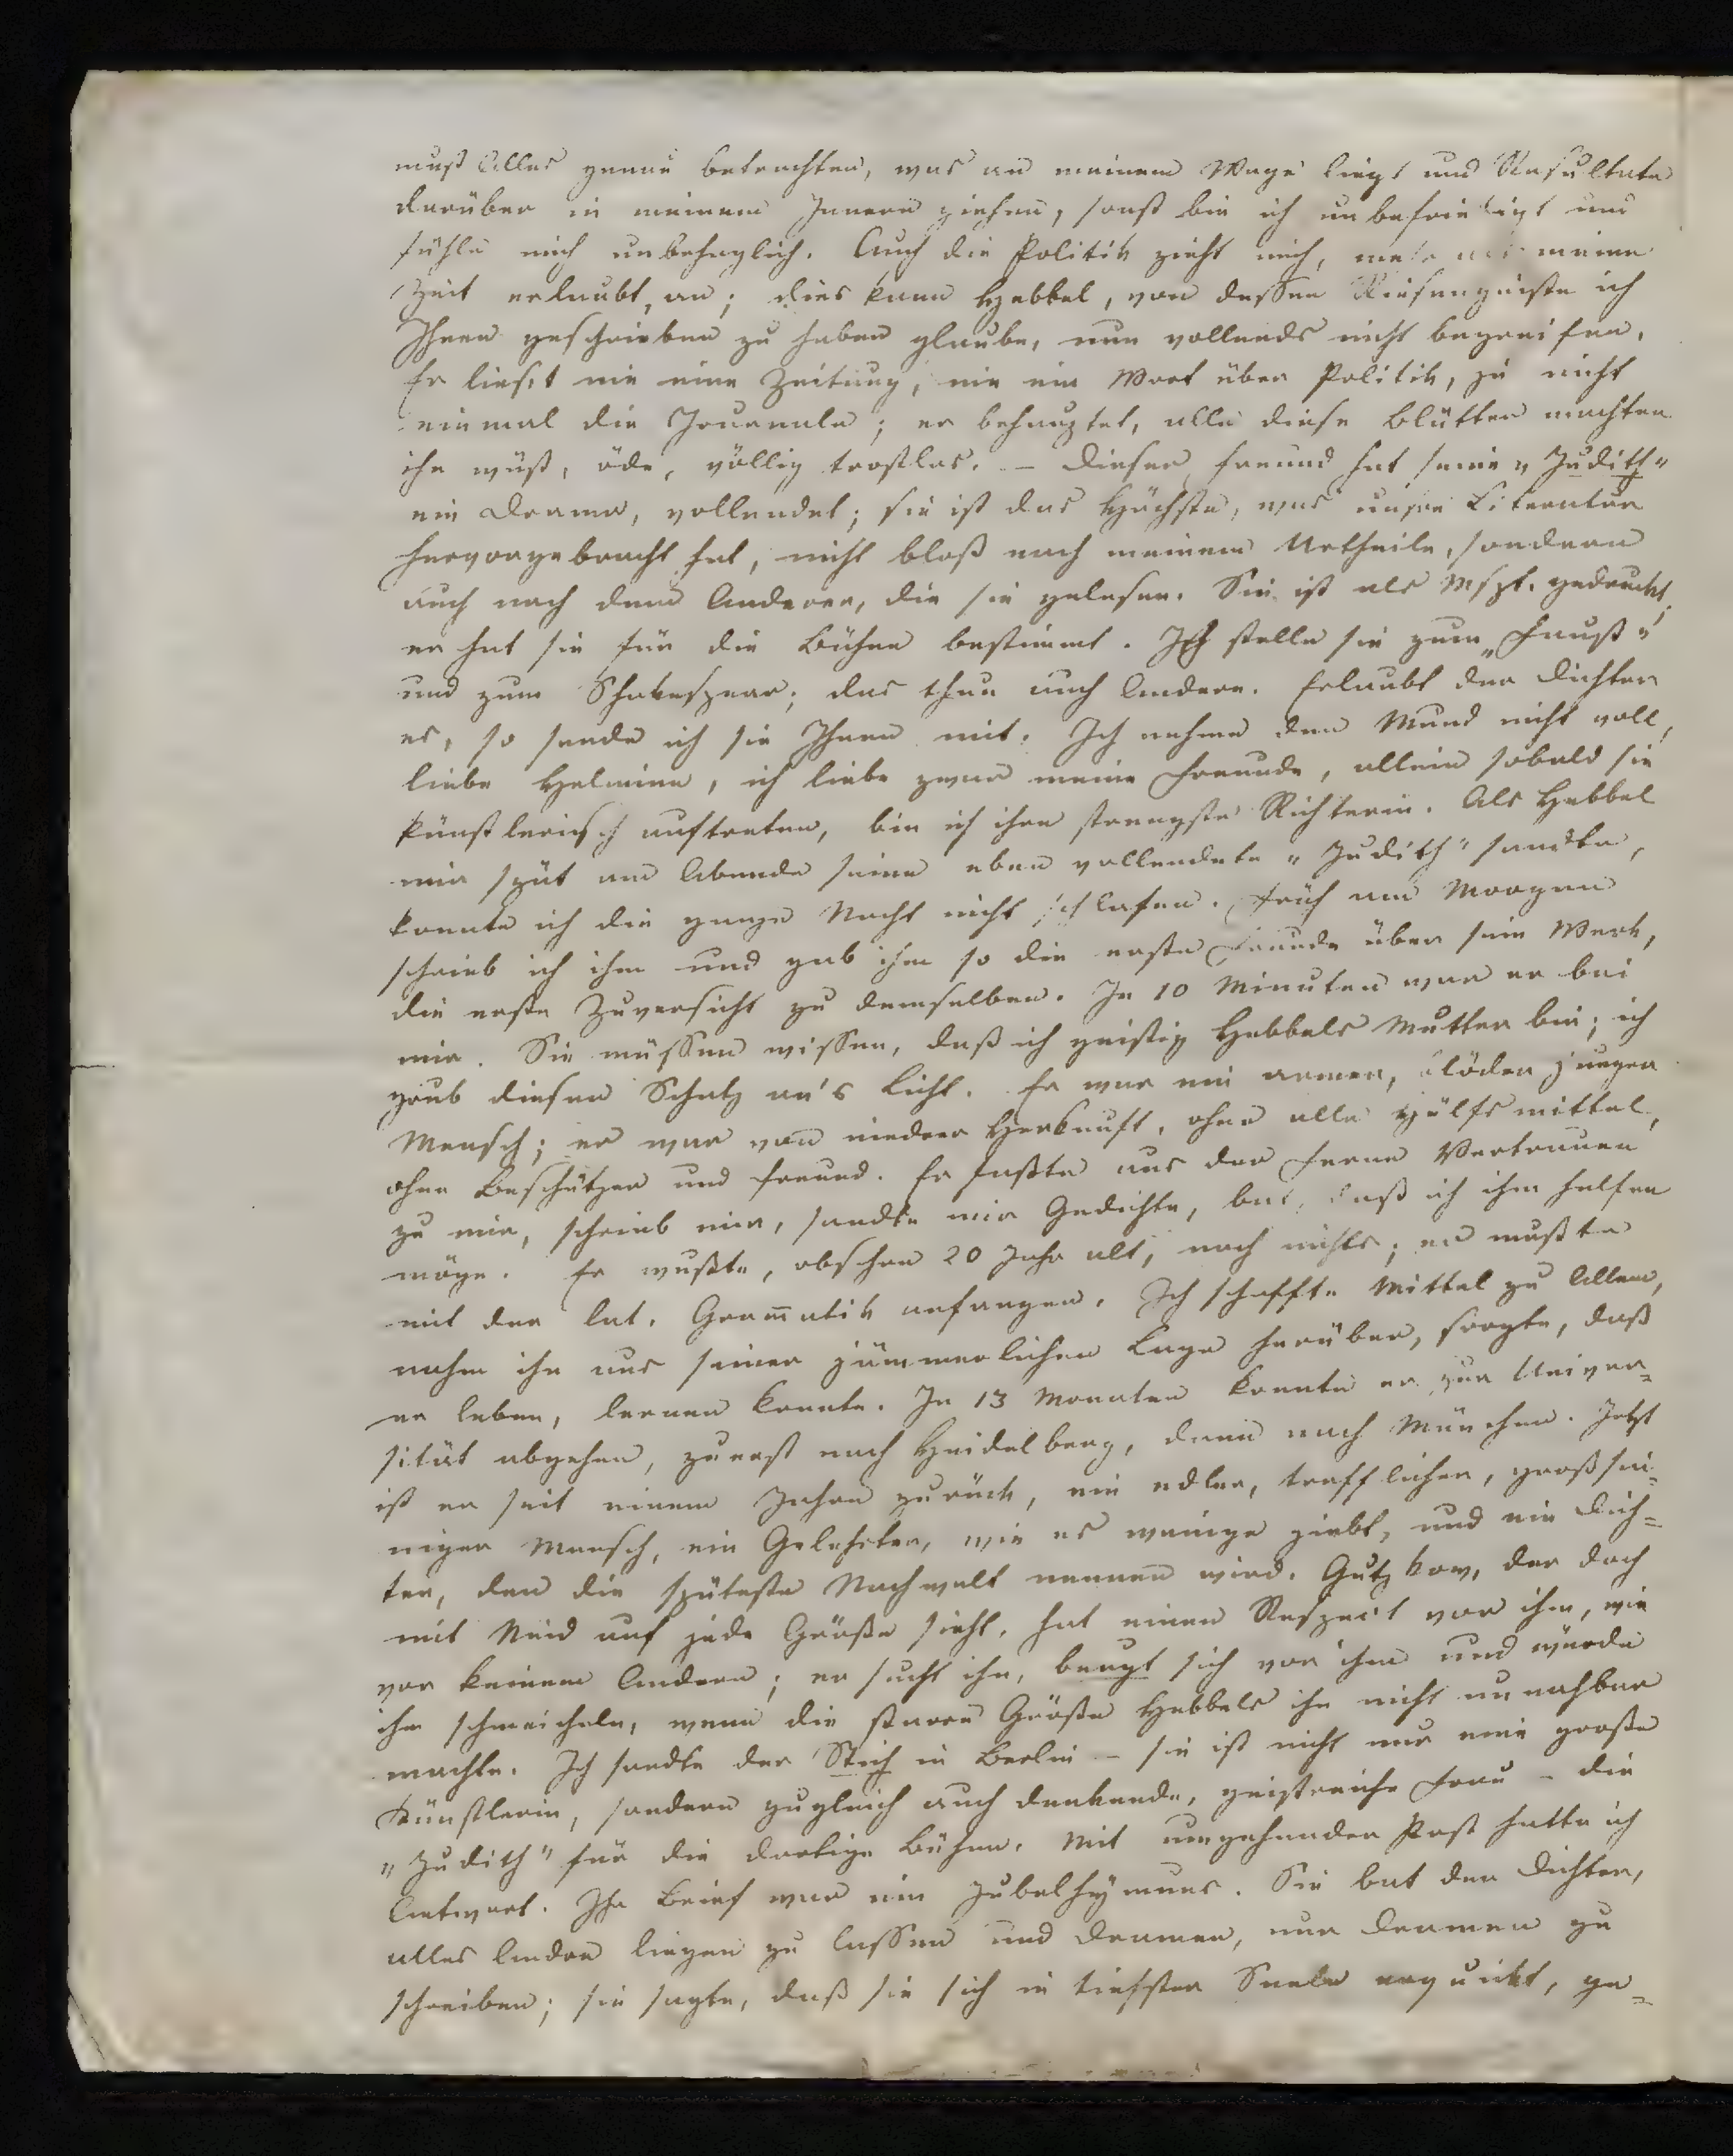 muß Alles genau betrachten, was an meinem Wege liegt und Resultate
darüber in meinem Innern ziehen, sonst bin ich unbefriedigt und
fühle mich unbehaglich. Auch die Politik zieht mich, mehr als meine
Zeit erlaubt, an; dies kann Hebbel, von dessen Riesengeiste ich
Ihnen geschrieben zu haben glaube, nun vollends nicht begreifen.
Er lies't nie eine Zeitung, nie ein Wort über Politik, ja nicht
einmal die Journale; er behauptet, alle diese Blätter machten
ihn wüst, öde, völlig trostlos. – Dieser Freund hat seine „Judith"
ein Drama, vollendet; sie ist das Höchste, was unsre Literatur
hervorgebracht hat, nicht bloß nach meinem Urtheile, sondern
auch nach dem Anderer, die sie gelesen. Sie ist als Mspt. gedruckt,
er hat sie für die Bühne bestimmt. Ich stelle sie zum „Faust"
und zum Shakespear; das thun auch Andere. Erlaubt der Dichter
es, so sende ich sie Ihnen mit. Ich nehme den Mund nicht voll,
liebe Helmine, ich liebe zwar meine Freunde, allein sobald sie
künstlerisch auftreten, bin ich ihre strengste Richterin. Als Hebbel
mir spät am Abende seine eben vollendete „Judith" sandte,
konnte ich die ganze Nacht nicht schlafen. Früh am Morgen
schrieb ich ihm und gab ihm so die erste Freude über sein Werk,
die erste Zuversicht zu demselben. In 10 Minuten war er bei
mir. Sie müssen wissen, daß ich geistig Hebbels Mutter bin; ich
grub diesen Schatz an's Licht. Er war ein armer, blöder junger
Mensch; er war von niedrer Herkunft, ohne alle Hülfsmittel,
ohne Beschützer und Freund. Er faßte aus der Ferne Vertrauen
zu mir, schrieb mir, sandte mir Gedichte, bat, daß ich ihm helfen
möge. Er wußte, obschon 20 Jahr alt, noch nichts; er mußte
mit der lat. Gram̄atik anfangen. Ich schaffte Mittel zu Allem,
nahm ihn aus seiner jämmerlichen Lage herüber, sorgte, daß
er leben, lernen konnte. In 13 Monaten konnte er zur Univer=
sität abgehen, zuerst nach Heidelberg, dann nach München. Jetzt
ist er seit einem Jahre zurück, ein edler, trefflicher, großsin=
niger Mensch, ein Gelehrter, wie es wenige giebt, und ein Dich=
ter, den die späteste Nachwelt nennen wird. Gutzkow, der doch
mit Neid auf jede Größe sieht, hat einen Respect vor ihm, wie
vor keinem Andern; er sucht ihn, beugt sich vor ihm und würde
ihm schmeicheln, wenn die starre Größe Hebbels ihn nicht unnahbar
machte. Ich sandte der Stich in Berlin – sie ist nicht nur eine große
Künstlerin, sondern zugleich auch denkende, geistreiche Frau – die
„Judith" für die dortige Bühne. Mit umgehender Post hatte ich
Antwort. Ihr Brief war ein Jubelhymnus. Sie bat den Dichter,
alles Andre liegen zu lassen und Dramen, nur Dramen zu
schreiben; sie sagte, daß sie sich in tiefster Seele erquickt, ge=